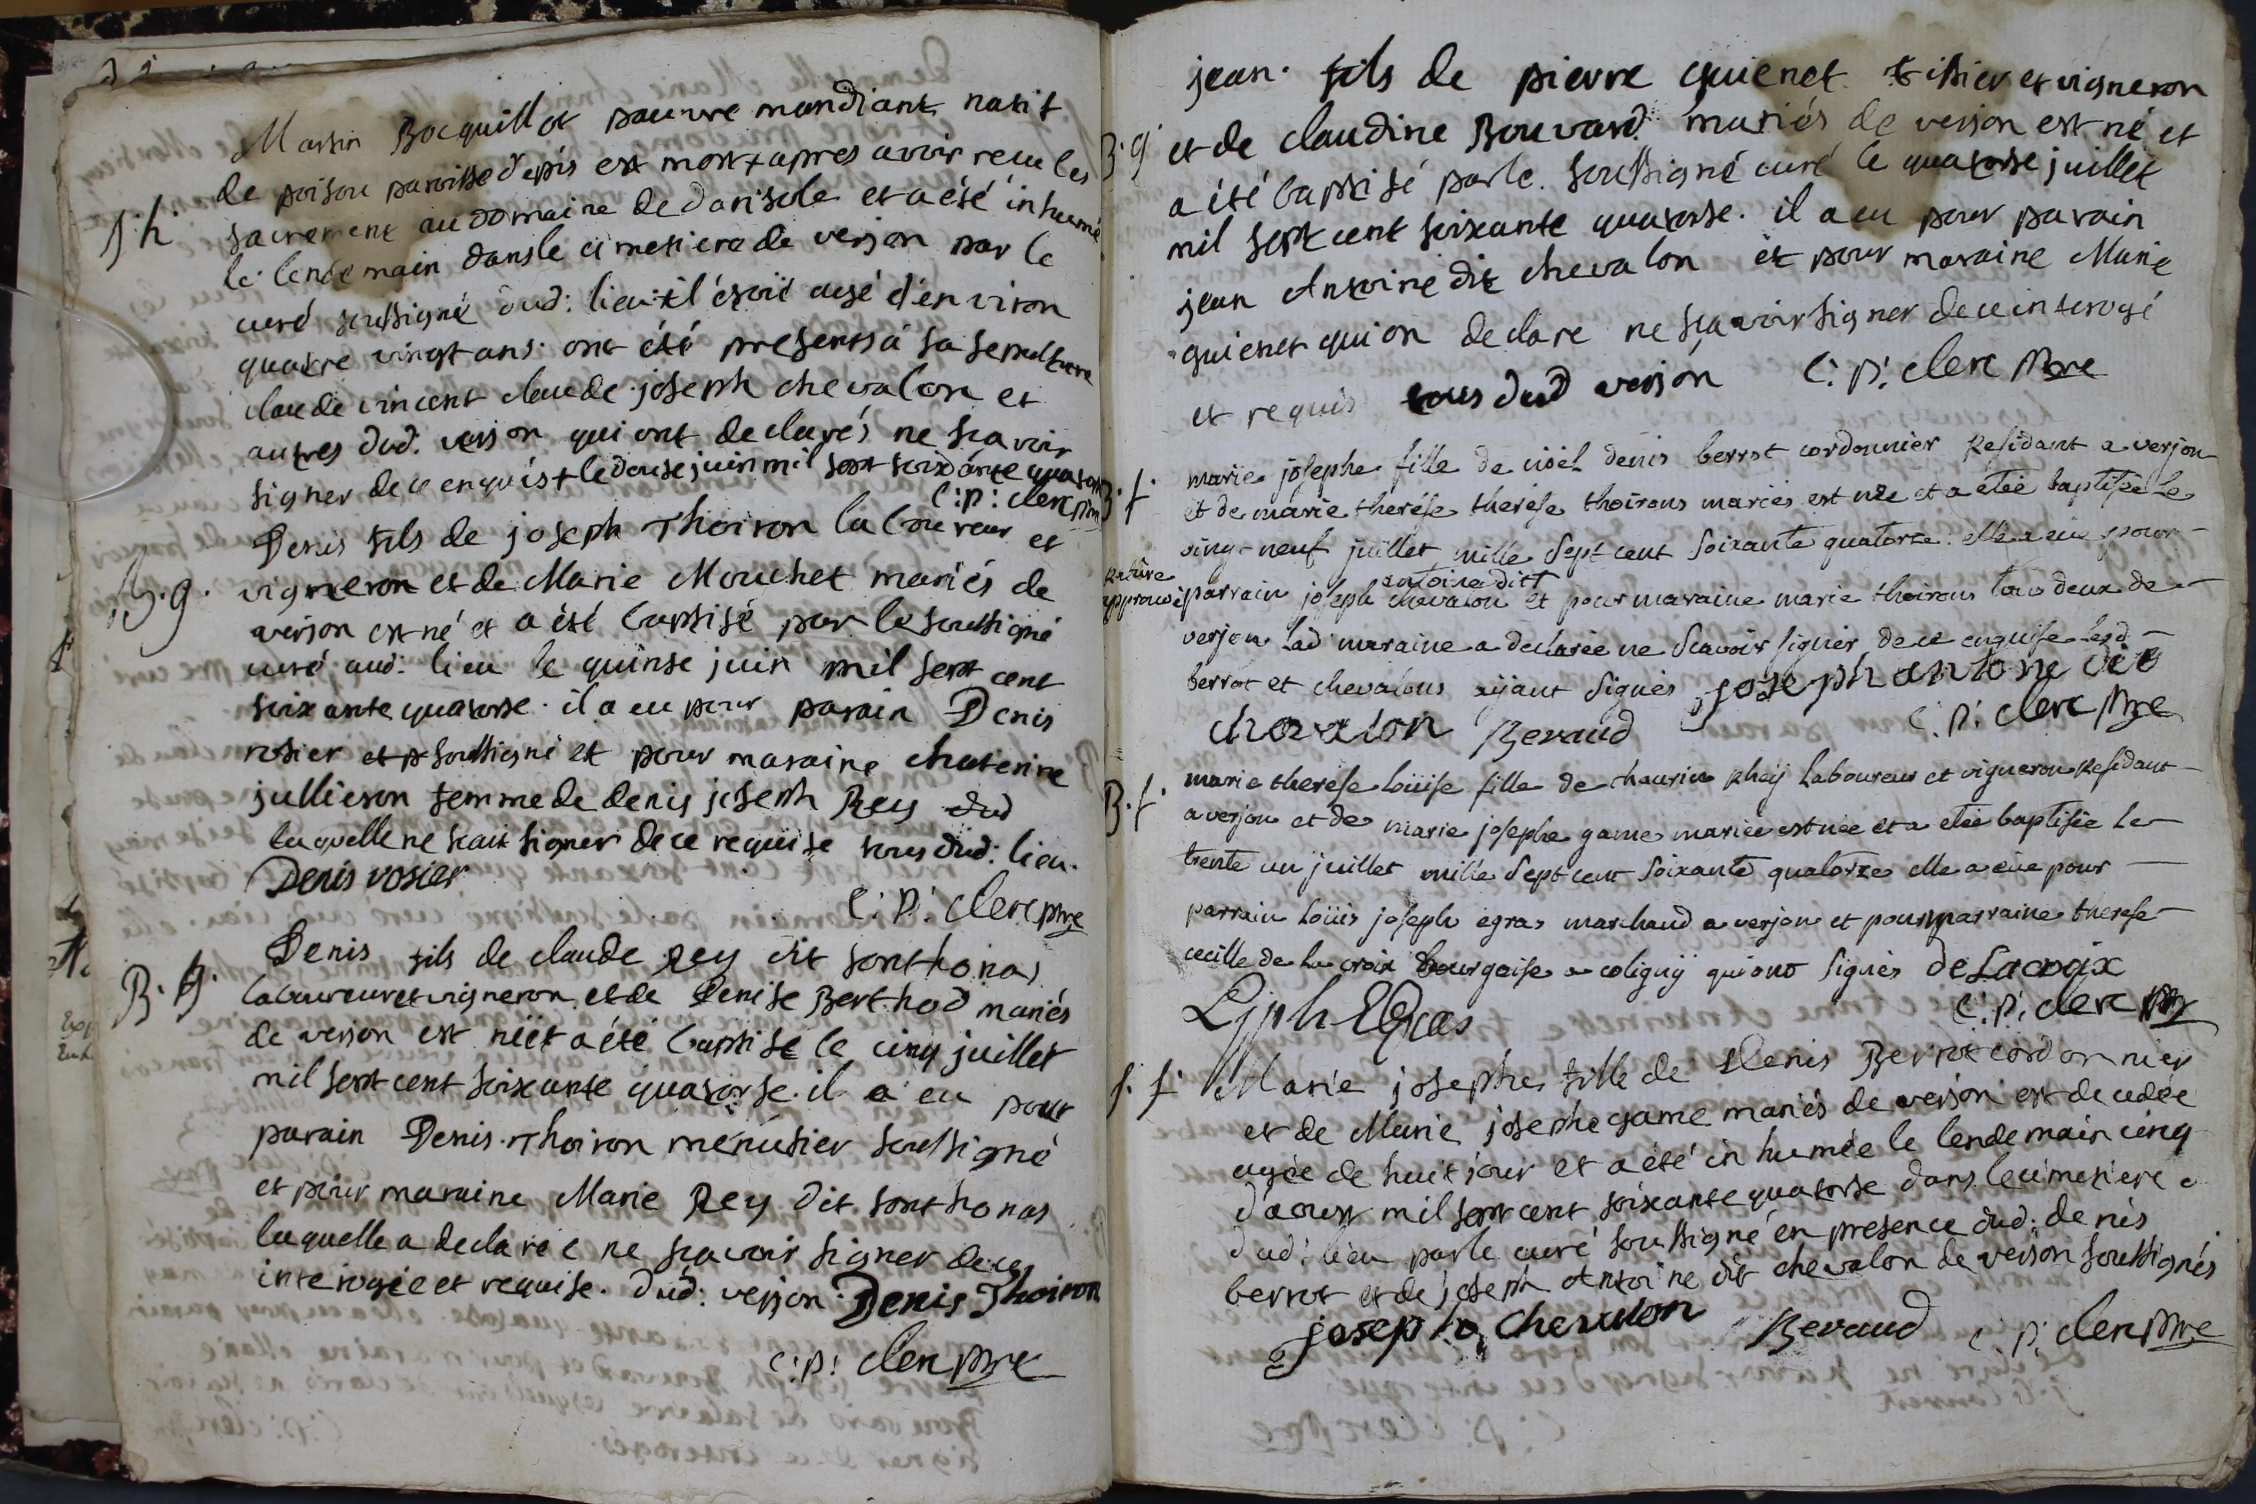 Martin Bocquillot pauvre mandiant natif
de poisou paroisse depis est mort + apres avoir recu les
S. h. sacrement au domaine de darisole et a été inhumé
le lendemain dans le cimetiere de verjon par le
curé soussigné dud: lieu: il étoit agé d'environ
quatre vingt ans. ont été presents a sa sepulture
claude vincent claude joseph chevalon et
autres dud: verjon qui ont declarés ne scavoir
signer de ce enquis + le douse juin mil sept soixante quatorse
C: p: clerc ptre
Denis fils de joseph Thoiron laboureur et
B. g. vigneron et de Marie Mouchet mariés de
verjon est né et a été baptisé par le soussigné
curé aud: lieu le quinse juin mil sept cent
soixante quatorse. il a eu pour parain Denis
rosier soussigné et pour maraine chaterine
jullieron femme de denis joseph Rey dud
laquelle ne scait signer de ce requise tous dud: lieu.
Denis rosier
C: p: clerc ptre
Denis fils de claude Rey dit sonthonas
B. g. laboureur et vigneron et de Denise Berthod mariés
de verjon est né et a été baptisé le cinq juillet
mil sept cent soixante quatorse. il a eu pour
parain Denis Thoiron ménusier soussigné
et pour maraine Marie Rey dit sonthonas
laquelle a declarée ne scavoir signer de ce
interogée et requise. dud: verjon. Denis Thoiron
C: p: clerc ptre
jean fils de pierre quienet tissier et vigneron
B. g. et de claudine Bouvard mariés de verjon est né et
a été baptisé par le soussigné curé le quatorse juillet
mil sept cent soixante quatorse. il a eu pour parain
jean Antoine dit chevalon et pour maraine Marie
quienet qui on declare ne scavoir signer de ce interogé
et requis tous dud verjon C: p: clerc ptre
B. f. marie josephe fille de denis berrot cordonnier Residant a verjon
et de marie therése therése thoirons mariés est née et a étée baptisée le
vingt neuf juillet mille sept cent soixante quatorze elle a eue pour
Rature approuvé parrain joseph antoine ditt chevalon et pour maraine marie thoirons tous deux de
verjon lad maraine a declarée ne scavoir signer de ce enquise lesd
berrot et chevalons aÿant signés joseph antone dit
chavalon Beraud C: p: clerc ptre
B. f. marie therése loüise fille de Rhey laboureur et vigneron Residant
a verjon et de marie josephe game mariée est née et a etée baptisée le
trente un juillet mille sept cent soixante quatorze elle a eue pour
parrain loüis joseph egras marchand a verjon et pour marraine therese
cecille de la croix bourgoise a coligny qui ont signés De Lacroix
Ljph EGras C: p: clerc ptre
S. f. Marie josephe fille de Denis Berrot cordonnier
et de Marie josephe game mariés de verjon est decedée
agée de huit jour et a été inhumée le lendemain cinq
d'aoust mil sept cent soixante quatorse dans le cimetiere
dud: lieu par le curé soussigné en presence dud: denis
berrot et de joseph Antoine dit chevalon de verjon soussignés
joseph chevalon Beraud C: p: clerc ptre